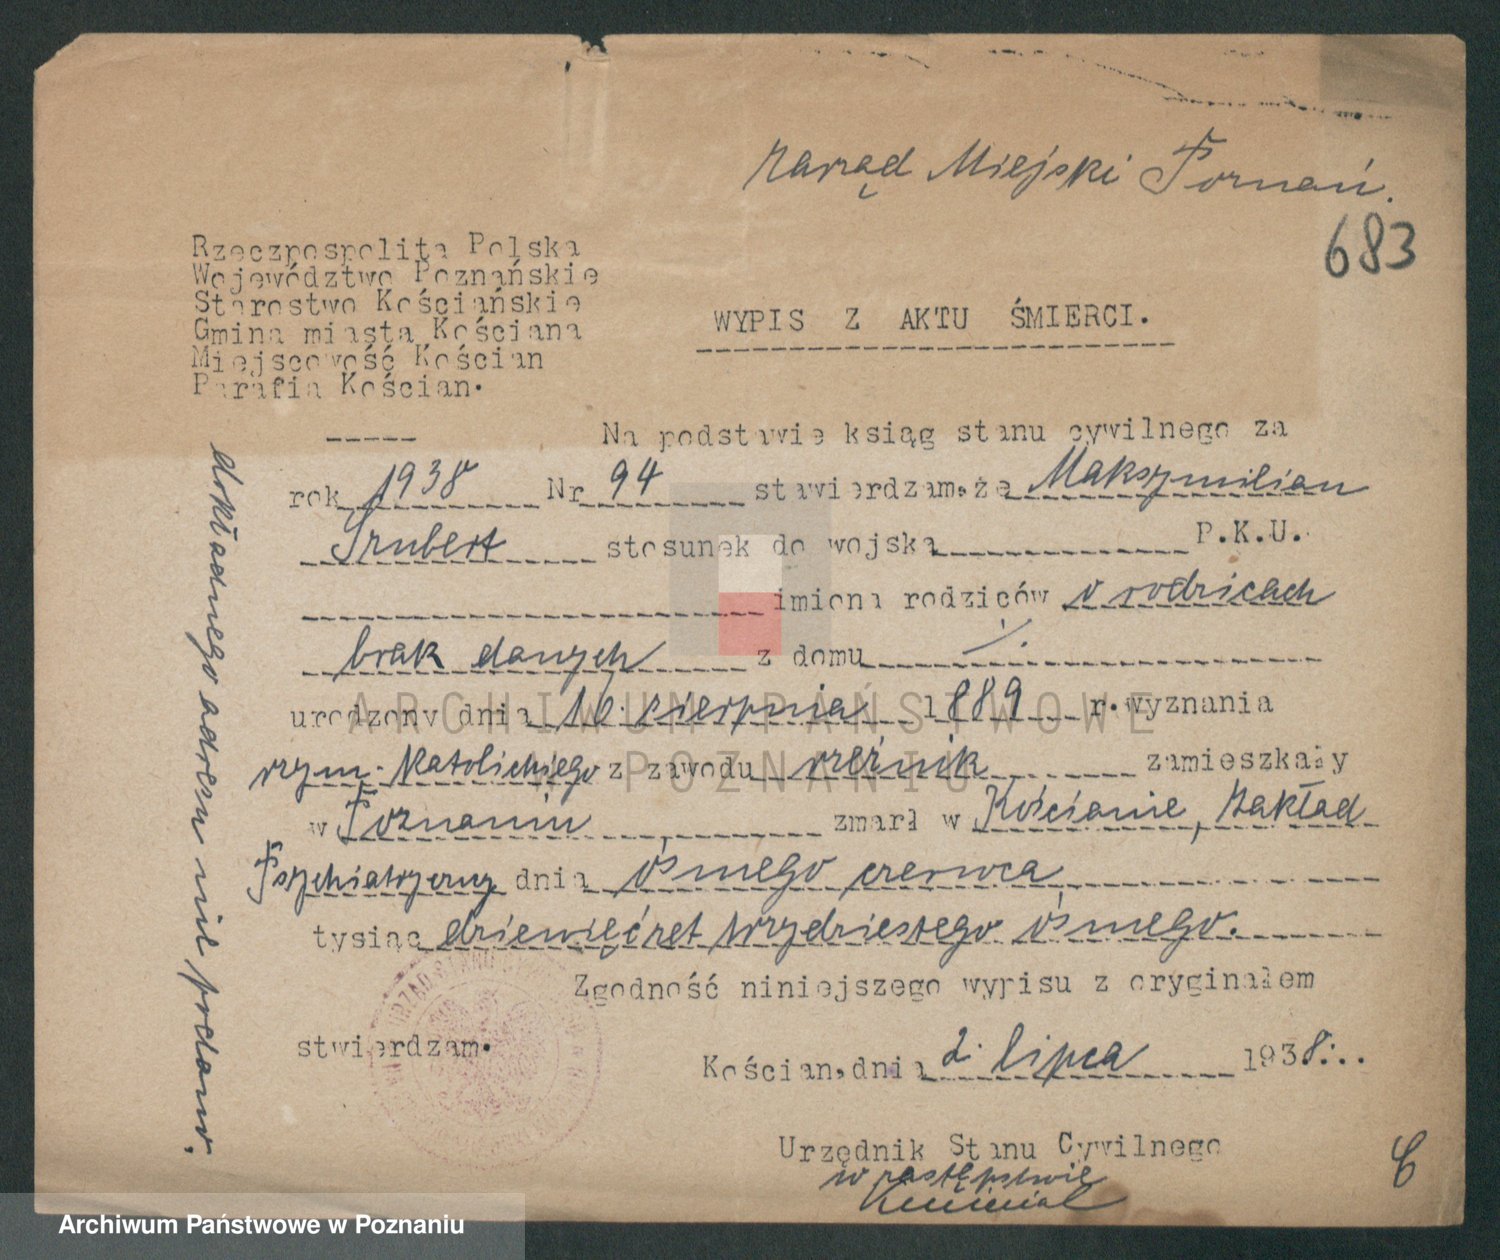 Zarząd Miejski Poznań.
683
Rzeczpospolita Polska
Województwo Poznańskie
Starostwo Kościańskie
Gmina miasta Kościana
Miejscowość Kościan
Parafia Kościan.
WYPIS Z AKTU ŚMIERCI.
Na podstawie ksiąg stanu cywilnego za
rok 1938 Nr 94 stawierdzam, że Maksymilian
Szubert stosunek do wojska P.K.U.
imiona rodziców o rodzicach
brak danych z domu /.
urodzony dnia 10. sierpnia 1889 r. wyznania
rzym. katolickiego z zawodu rzeźnik zamieszkały
w Poznaniu, zmarł w Kościanie, Zakład
Psychiatryczny dnia ósmego czerwca
tysiąc dziewięćset trzydziestego ósmego.
Zgodność niniejszego wypisu z oryginałem
stwierdzam.
Kościan, dnia 2. lipca 1938...
Urzędnik Stanu Cywilnego
w zastępstwie
dokładnego adresu nie podano.
ARCHIWUM PAŃSTWOWE
W POZNANIU
Archiwum Państwowe w Poznaniu